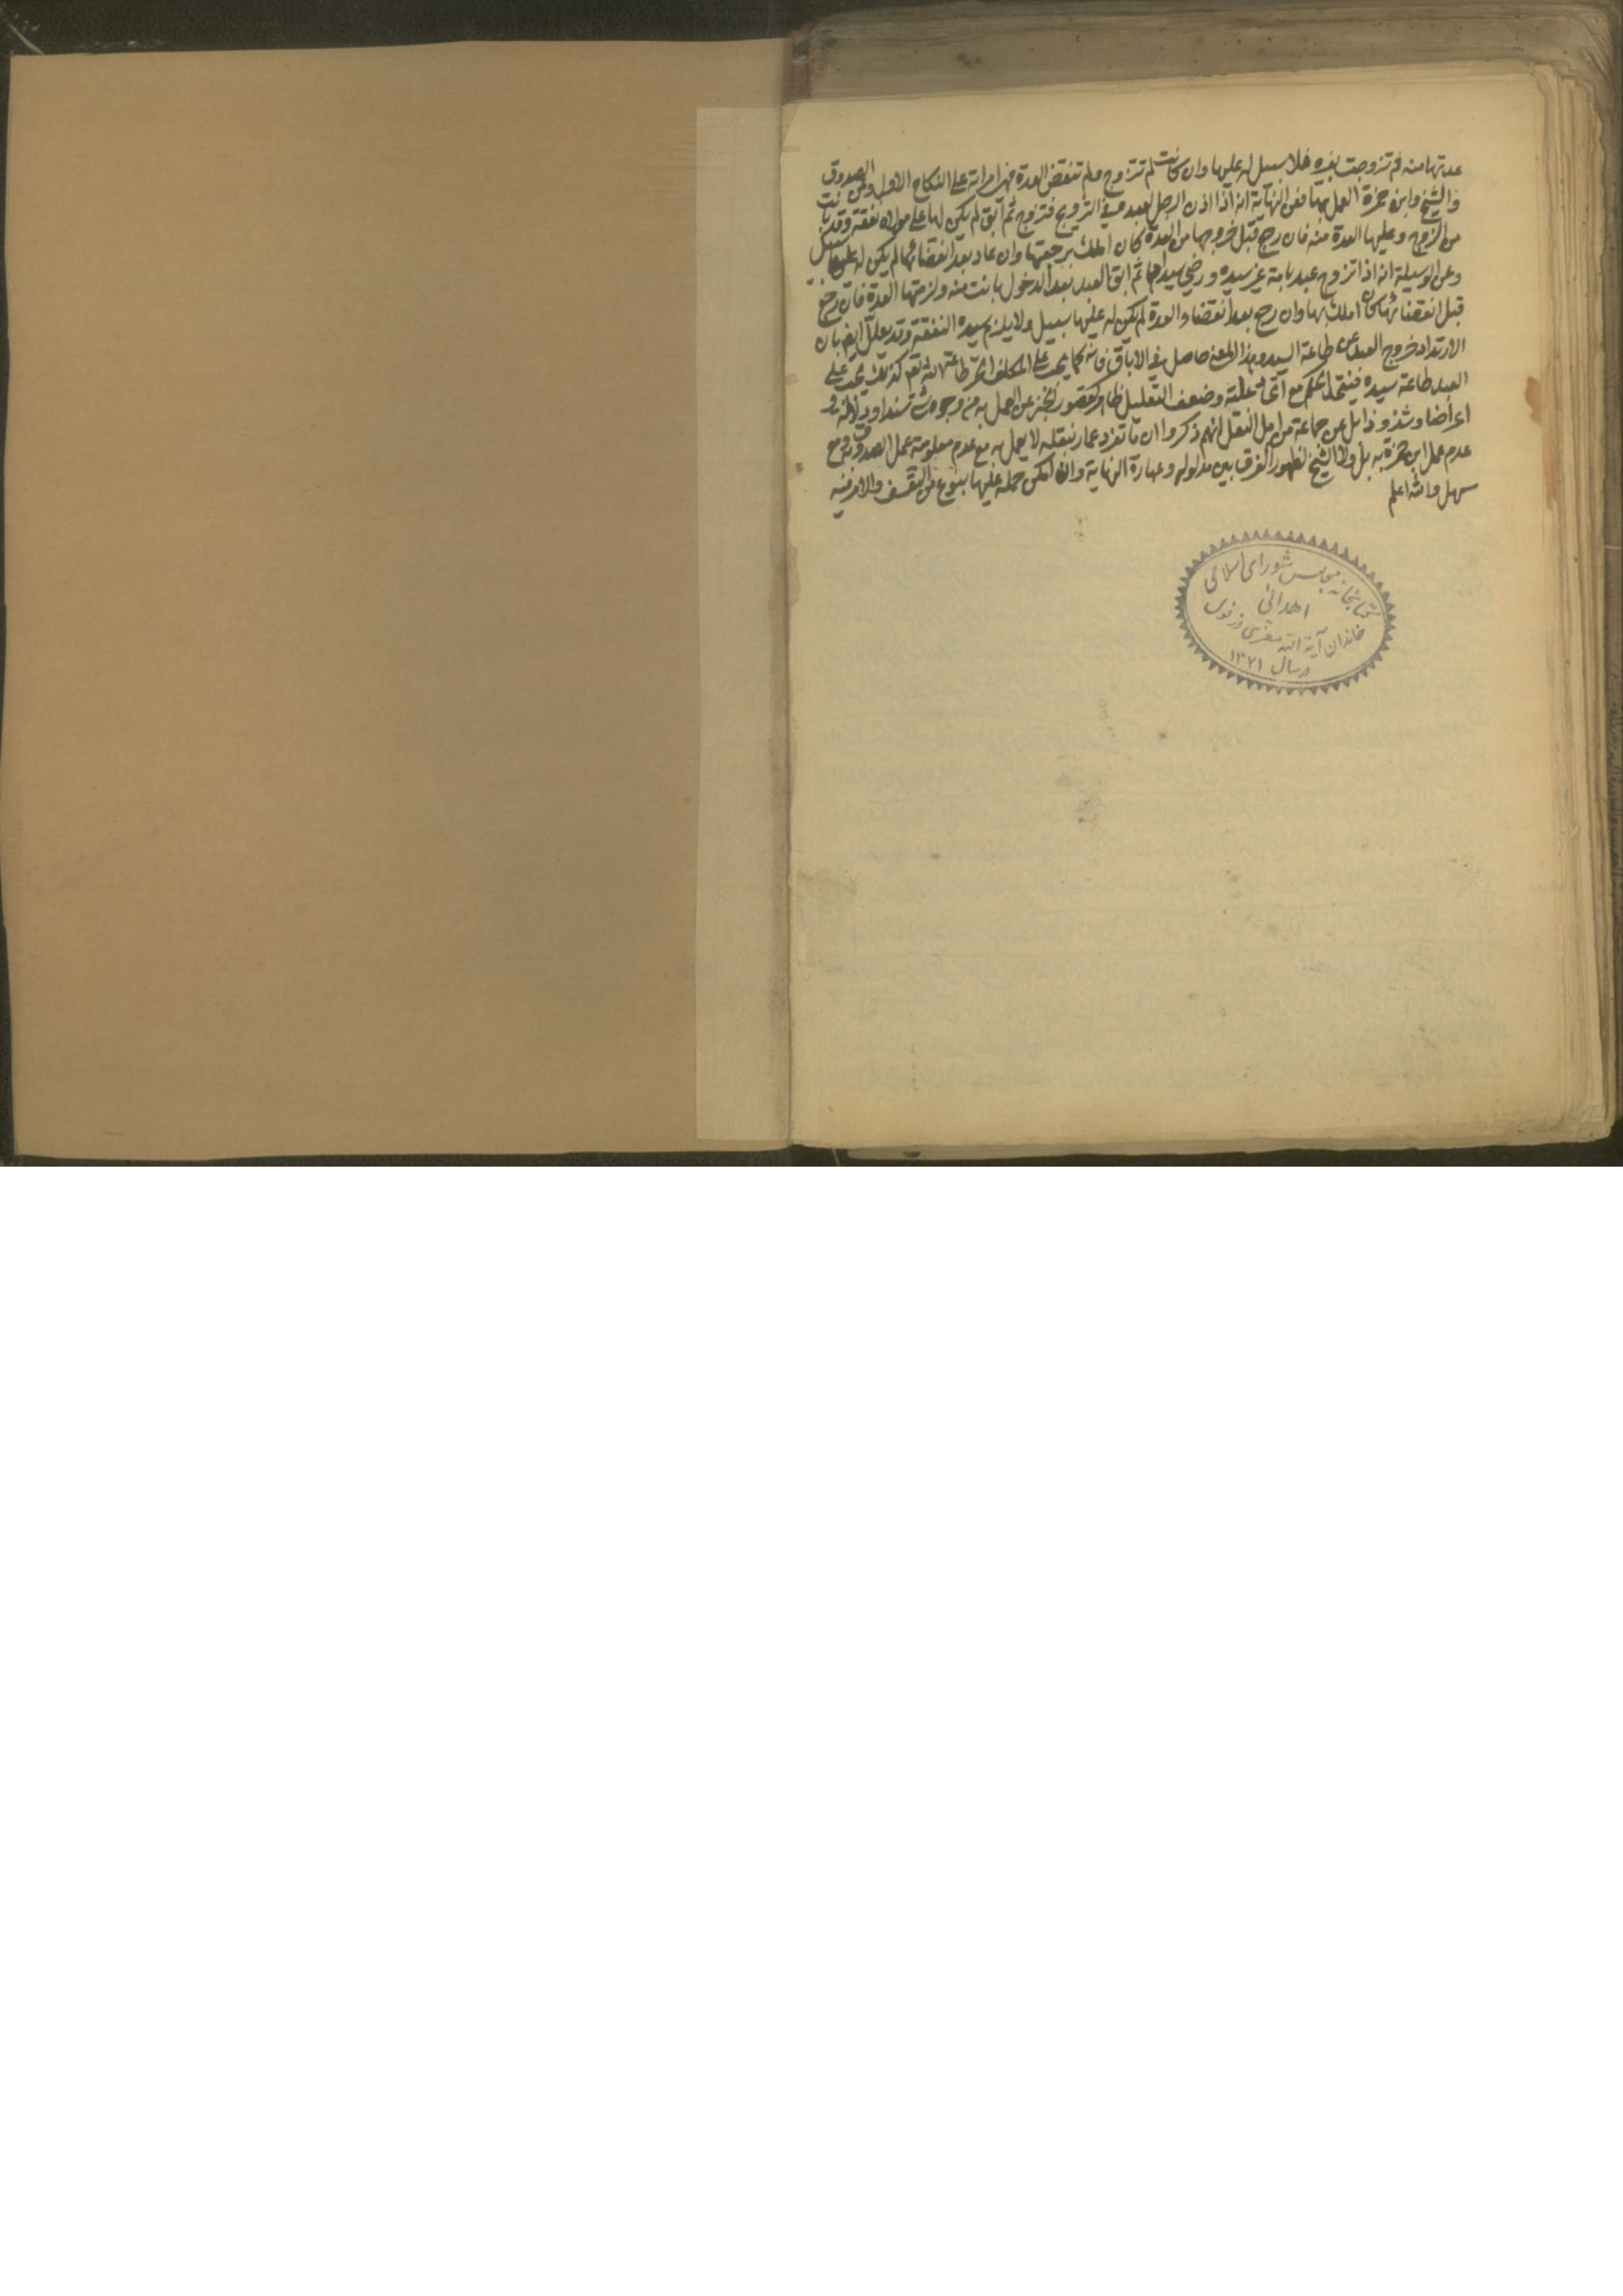 عدتها منه ثم تزوجت بغيره فلا سبيل له عليها وان كانت لم تتزوج ولم تنقض العدة فهى امراته على النكاح الاول وعن الصدوق
والشيخ وابن حمزة العمل بها فعن النهاية انه اذا اذن الرجل لعبده فى التزويج فتزوج ثم ابق لم يكن لها على مولاه نفقة وقد بانت
من الزوج وعليها العدة منه فان رجع قبل خروجها من العدة كان املك برجعتها وان عاد بعد انقضائها لم يكن له عليها سبيل
وعن الوسيلة انه اذا تزوج عبد بامة غير سيده ورضى سيداهما ثم ابق العبد بعد الدخول بانت منه ولزمتها العدة فان رجع
قبل انقضائها كان املك بها وان رجع بعد انقضاء العدة لم يكن له عليها سبيل ولا يلزم سيده النفقة وقد يعلل ايض بان
الارتداد خروج العبد عن طاعة السيد وهذا المعنى حاصل فى الاباق فانه كما يجب على المكلف الحر طاعة الله تعم كذلك يجب على
العبد طاعة سيده فيتحد الحكم مع اتحاد علته وضعف التعليل ظاهر كقصور الخبر عن العمل به من وجوه شتى سندا ودلالة و
اعراضا وشذوذا بل عن جماعة من اهل النقل انهم ذكروا ان ما تفرد عمار بنقله لا يعمل به مع عدم معلومية عمل الصدوق به ومع
عدم عمل ابن حمزة به بل ولا الشيخ لظهور الفرق بين مدلوله وعبارة النهاية وان امكن حمله عليها بنوع من التعسف والامر فيه
سهل والله اعلم
كتابخانه مجلس شوراى اسلامى
اهدائى
خاندان آية الله معزى دزفولى
درسال ١٣٧١